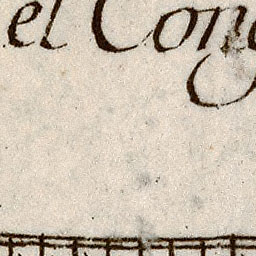 el Cong